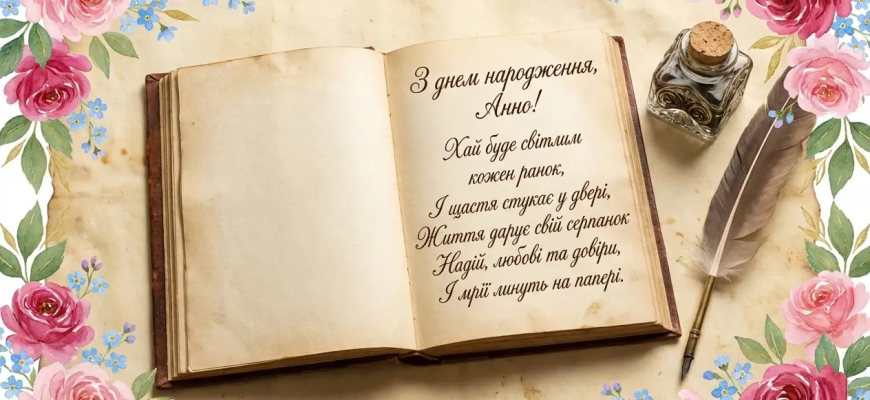 З днем народження,
Анно!
Хай буде світлим
кожен ранок,
І щастя стукає у двері,
Життя дарує свій серпанок
Надій, любові та довіри,
І мрії линуть на папері.